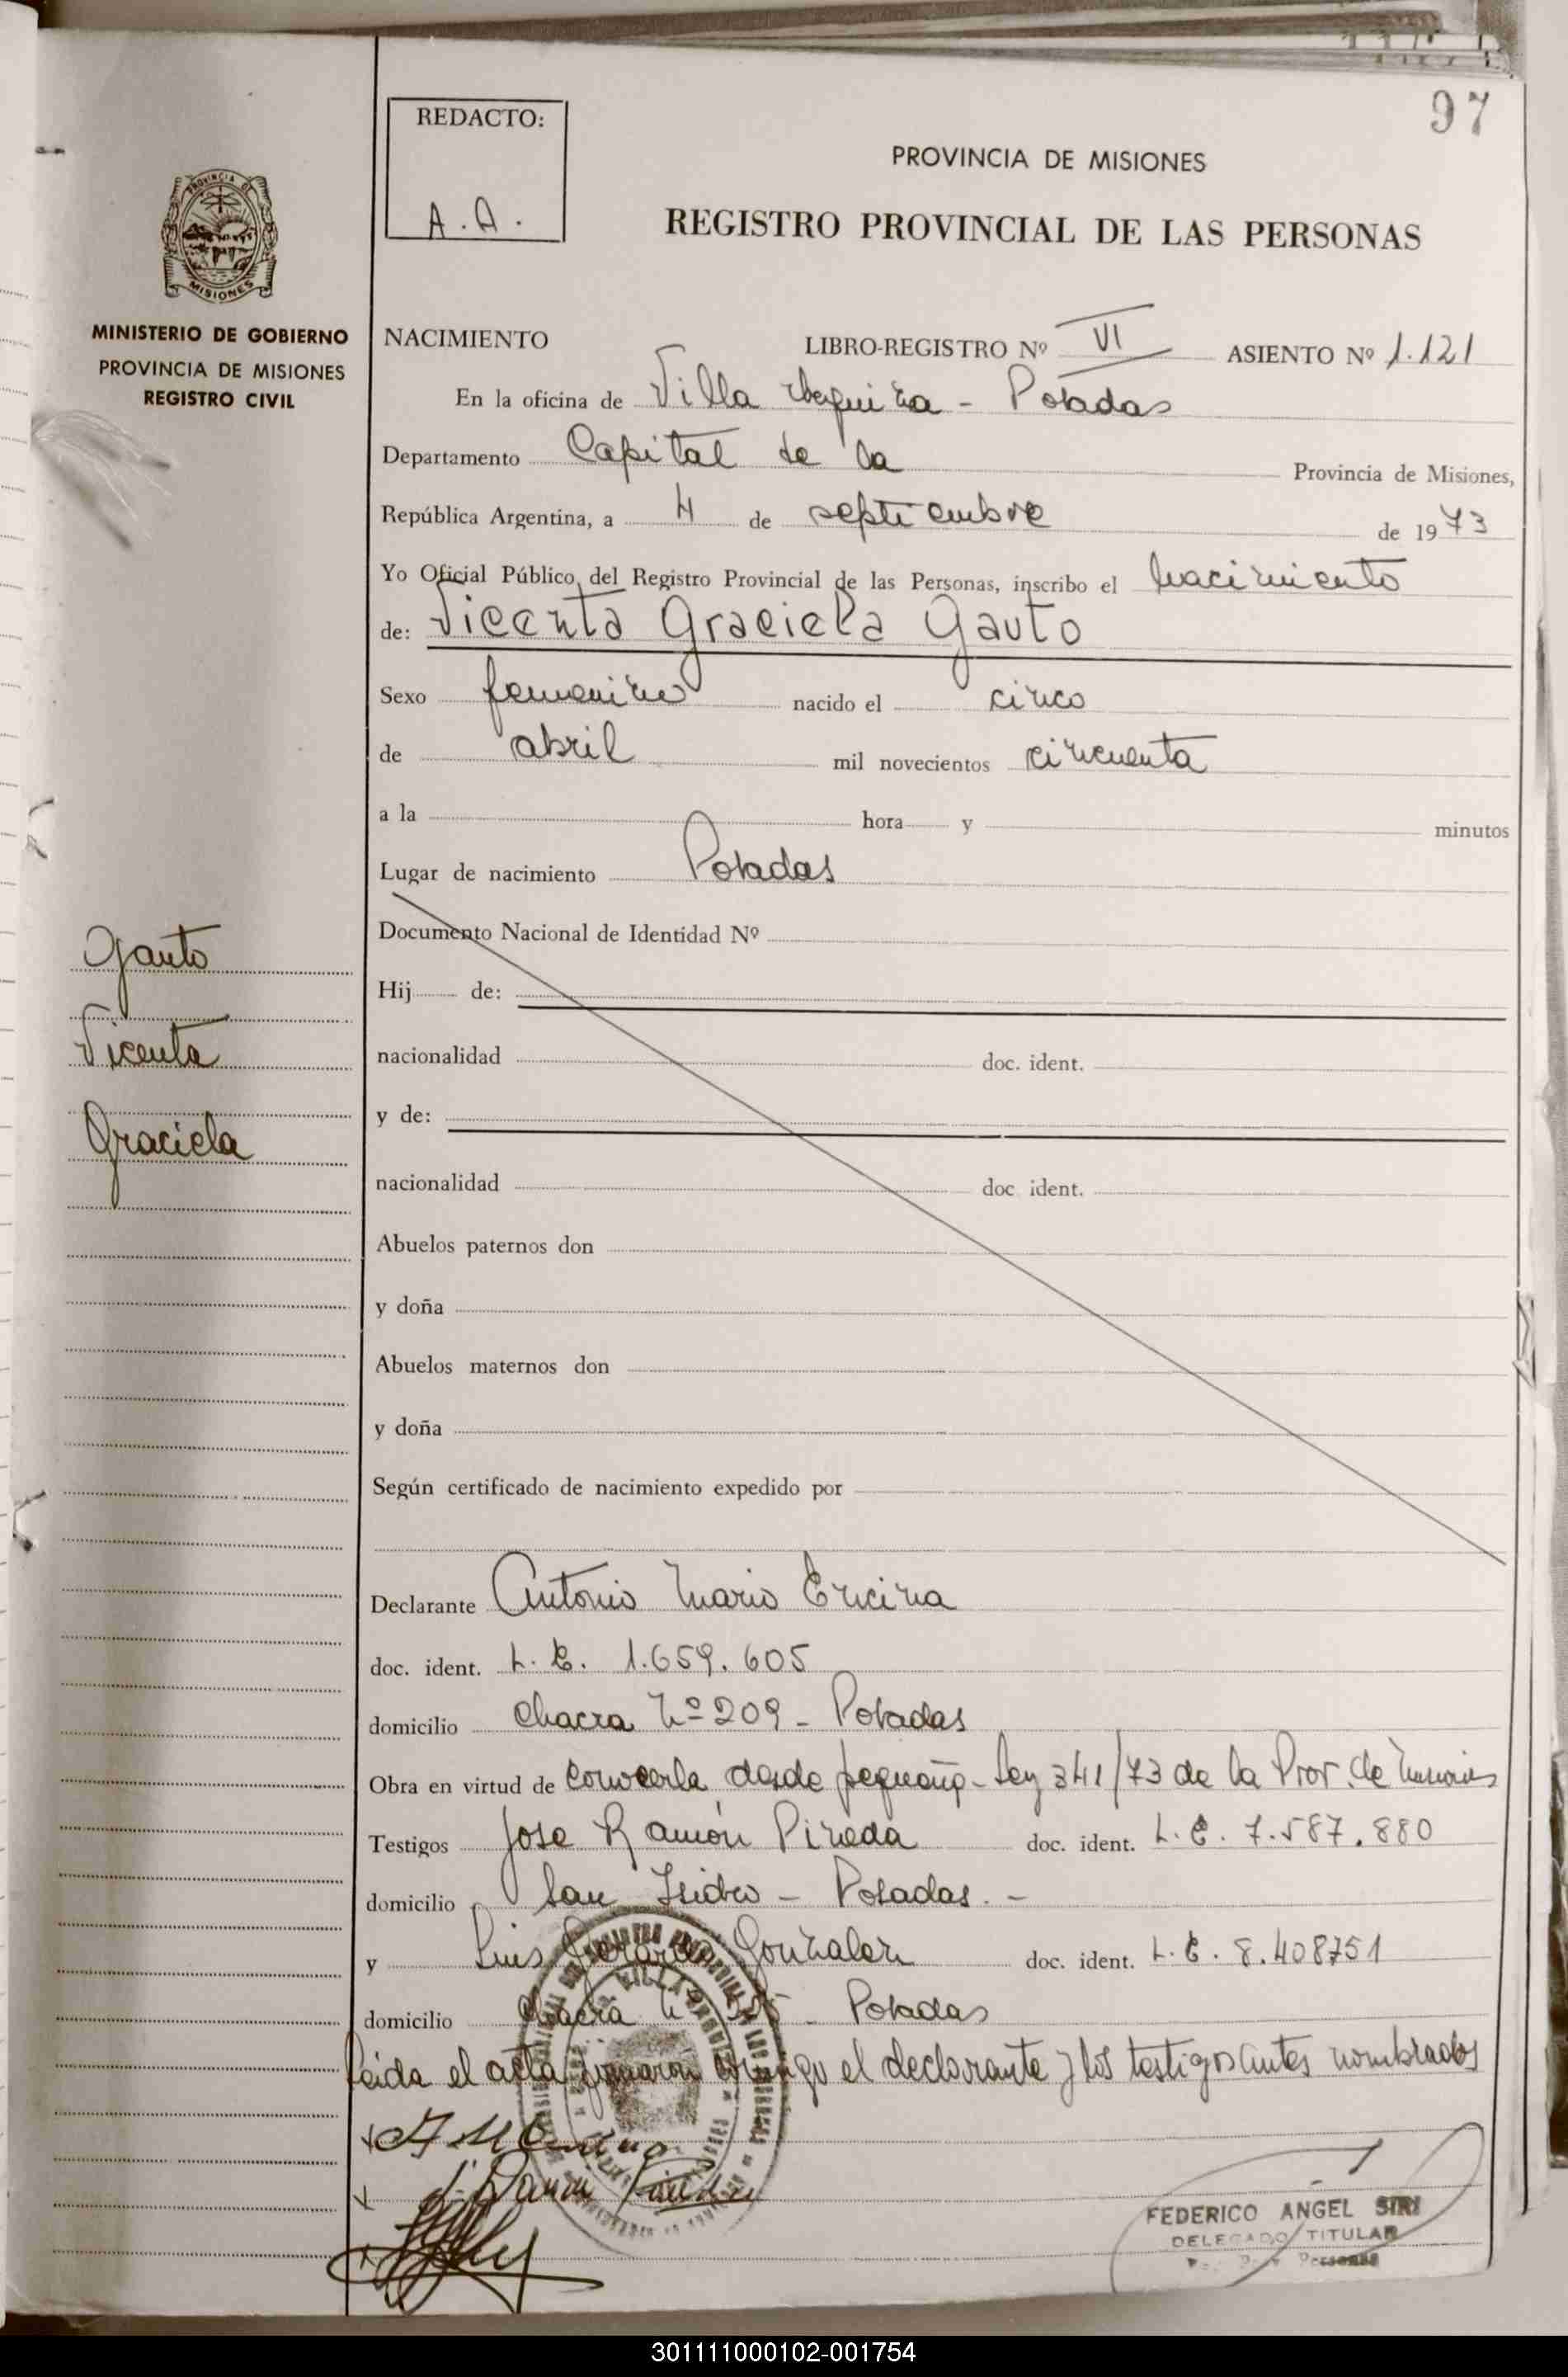 97
REDACTO:
A. A.
PROVINCIA DE MISIONES
REGISTRO PROVINCIAL DE LAS PERSONAS
PROVINCIA DE
MISIONES
MINISTERIO DE GOBIERNO
PROVINCIA DE MISIONES
REGISTRO CIVIL
NACIMIENTO LIBRO-REGISTRO Nº VI ASIENTO Nº 1.121
En la oficina de Villa Urquiza - Posadas
Departamento Capital de la Provincia de Misiones,
República Argentina, a 4 de septiembre de 1973
Yo Oficial Público del Registro Provincial de las Personas, inscribo el nacimiento
de: Vicenta Graciela Gauto
Sexo femenino nacido el cinco
de abril mil novecientos cincuenta
a la hora y minutos
Lugar de nacimiento Posadas
Documento Nacional de Identidad Nº
Hij de:
nacionalidad doc. ident.
y de:
nacionalidad doc ident.
Abuelos paternos don
y doña
Abuelos maternos don
y doña
Según certificado de nacimiento expedido por
Gauto
Vicenta
Graciela
Declarante Antonio Mario Encina
doc. ident. L. E. 1.659.605
domicilio Chacra Nº 209 - Posadas
Obra en virtud de conocerla desde pequeña - Ley 341/73 de la Prov. de Misiones
Testigos Jose Ramón Pineda doc. ident. L. E. 7.587.880
domicilio San Isidro - Posadas. -
y Luis Gerardo Gonzalez doc. ident. L. E. 8.408751
domicilio Chacra - Posadas
Leida el acta firmaron conmigo el declarante y los testigos antes nombrados
FEDERICO ANGEL SIRI
DELEGADO TITULAR
Personas
301111000102-001754